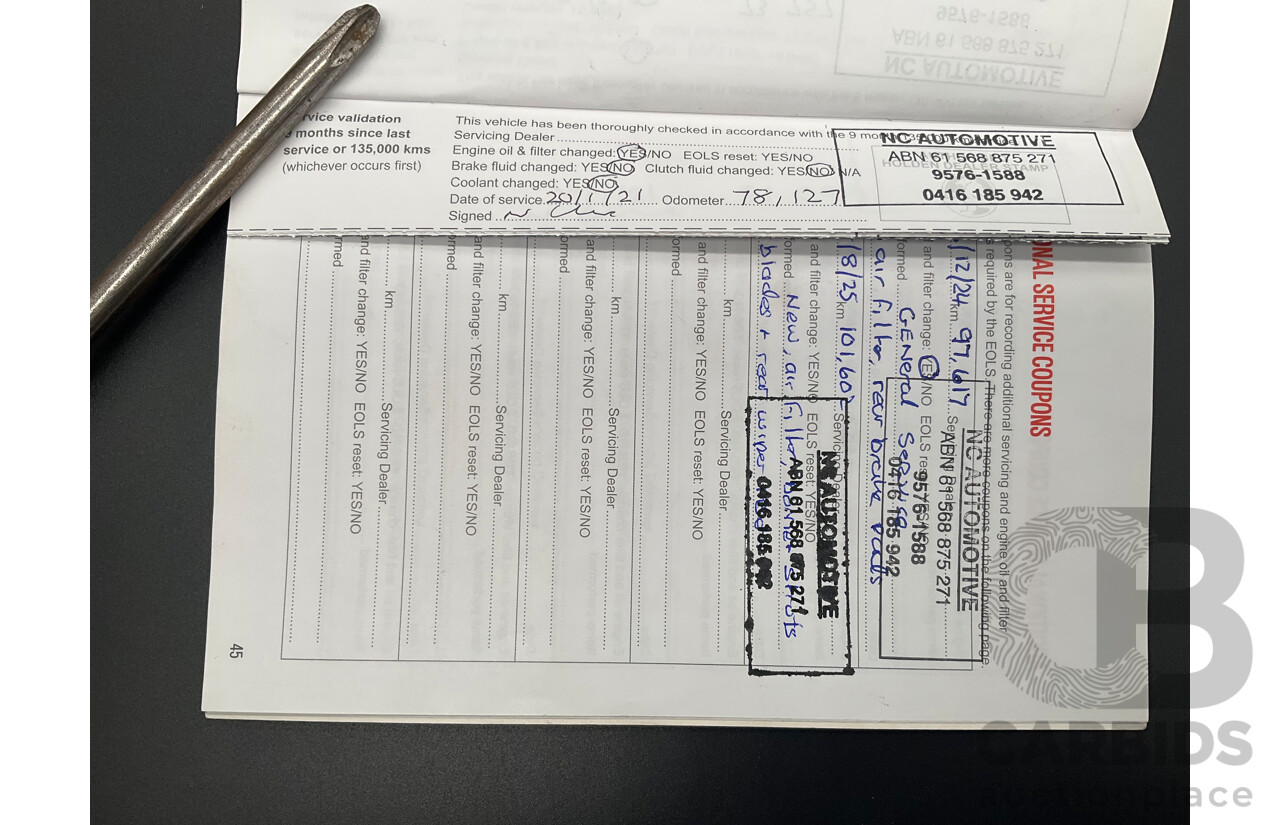 9576-1588
ABN 61 568 875 271
NC AUTOMOTIVE
vice validation
months since last
service or 135,000 kms
(whichever occurs first)
This vehicle has been thoroughly checked in accordance with the 9 mo
Servicing Dealer
Engine oil & filter changed: YES/NO EOLS reset: YES/NO
Brake fluid changed: YES/NO Clutch fluid changed: YES/NO N/A
Coolant changed: YES/NO
Date of service 20/1/21 Odometer 78,127
Signed
NC AUTOMOTIVE
ABN 61 568 875 271
HOLDEN DEALER STAMP
9576-1588
0416 185 942
NAL SERVICE COUPONS
pons are for recording additional servicing and engine oil and filter
s required by the EOLS. There are more coupons on the following page.
/12/24 km 97,617
and filter change: YES/NO EOLS
ormed General Service
air filter, rear brake
NC AUTOMOTIVE
ABN 61 568 875 271
9576-1588
0416 185 942
/8/25 km 101,60
and filter change: YES/NO EOLS reset: YES/NO
ormed New, air filter,
blades + rear wiper
NC AUTOMOTIVE
ABN 61 568 875 271
0416 185 942
km Servicing Dealer
and filter change: YES/NO EOLS reset: YES/NO
ormed
km Servicing Dealer
and filter change: YES/NO EOLS reset: YES/NO
ormed
km Servicing Dealer
and filter change: YES/NO EOLS reset: YES/NO
ormed
km Servicing Dealer
and filter change: YES/NO EOLS reset: YES/NO
ormed
45
CARBIDS
auctionplace